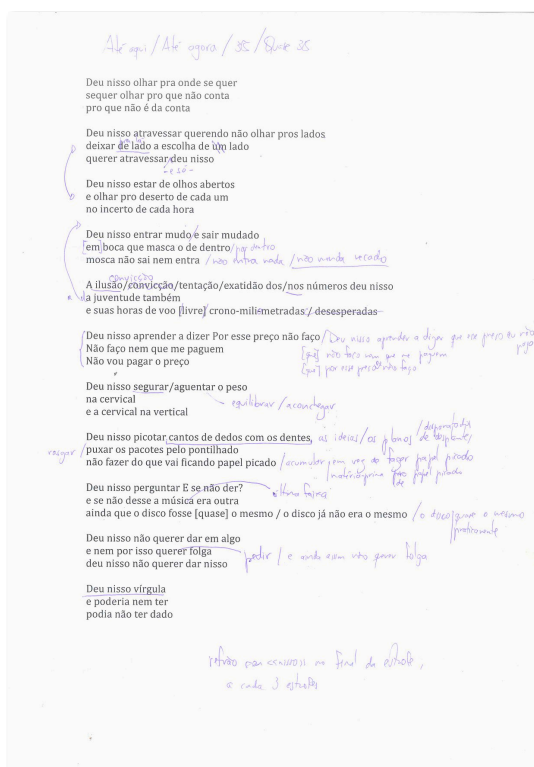 Até aqui / Até agora / 35 / Quase 35
Deu nisso olhar pra onde se quer
sequer olhar pro que não conta
pro que não é da conta
Deu nisso atravessar querendo não olhar pros lados
deixar de lado a escolha de um lado
querer atravessar deu nisso
- e só -
Deu nisso estar de olhos abertos
e olhar pro deserto de cada um
no incerto de cada hora
Deu nisso entrar mudo e sair mudado
[em]boca que masca o de dentro / por dentro
mosca não sai nem entra / não entra nada / não manda recado
convicção
A ilusão/convicção/tentação/exatidão dos/nos números deu nisso
a juventude também
e suas horas de voo [livre] crono-mili-metradas / desesperadas
Deu nisso aprender a dizer Por esse preço não faço / Deu nisso aprender a dizer que esse preço eu não
Não faço nem que me paguem [que] não faço nem que me paguem
Não vou pagar o preço [que] por esse preço não faço
Deu nisso segurar/aguentar o peso
na cervical equilibrar / aconchegar
e a cervical na vertical
Deu nisso picotar cantos de dedos com os dentes, as ideias / os planos de
rasgar / puxar os pacotes pelo pontilhado
não fazer do que vai ficando papel picado / acumular em vez de fazer papel picado
matéria prima papel picado
Deu nisso perguntar E se não der?
e se não desse a música era outra última faixa
ainda que o disco fosse [quase] o mesmo / o disco já não era o mesmo / o disco quase o mesmo
praticamente
Deu nisso não querer dar em algo
e nem por isso querer folga pedir / e ainda assim não querer folga
deu nisso não querer dar nisso
Deu nisso vírgula
e poderia nem ter
podia não ter dado
refrão no final da estrofe,
a cada 3 estrofes